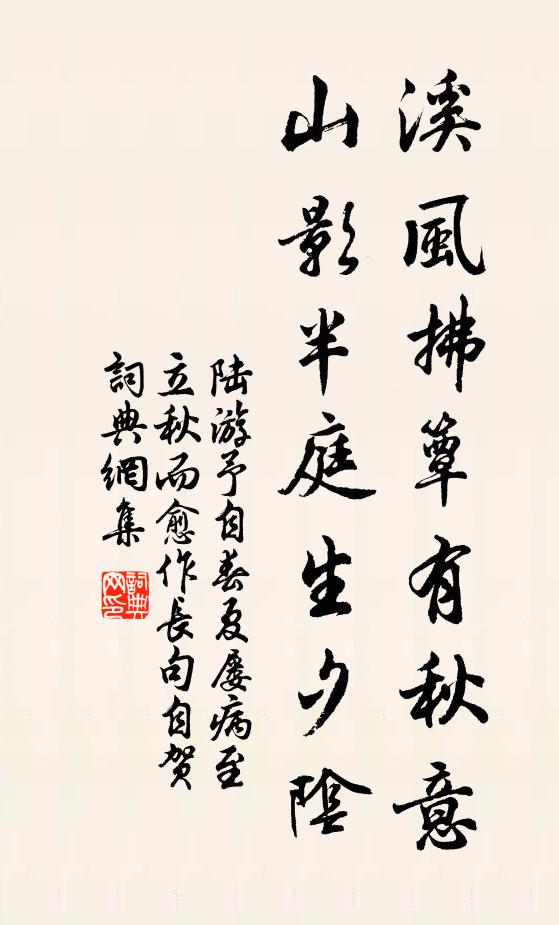 溪風拂簟有秋意
山影半庭生夕陰
陆游予自春夏屡病至
立秋而愈作長句自贺
詞典網集
詞典
网印